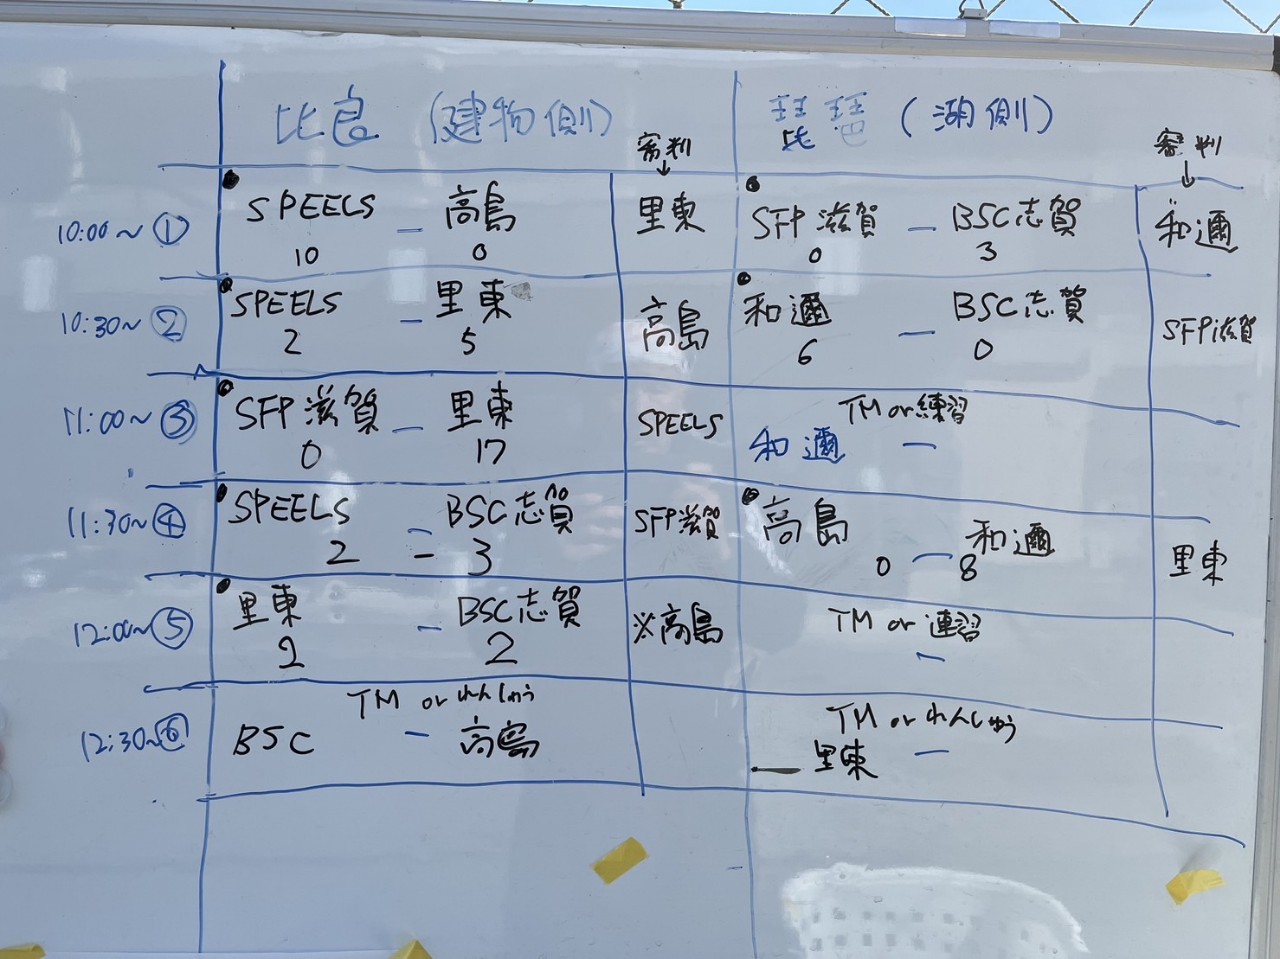 比良 (建物側)
審判
琵琶 (湖側)
審判
10:00～ ①
SPEELS － 高島
10 0
里東
SFP滋賀 － BSC志賀
0 3
和邇
10:30～ ②
SPEELS － 里東
2 5
高島
和邇 － BSC志賀
6 0
SFP滋賀
11:00～ ③
SFP滋賀 － 里東
0 17
SPEELS
TM or 練習
和邇 －
11:30～ ④
SPEELS － BSC志賀
2 - 3
SFP滋賀
高島 － 和邇
0 8
里東
12:00～ ⑤
里東 － BSC志賀
2 2
※高島
TM or 連習
－
12:30～ ⑥
TM or れんしゅう
BSC － 高島
TM or れんしゅう
里東 －